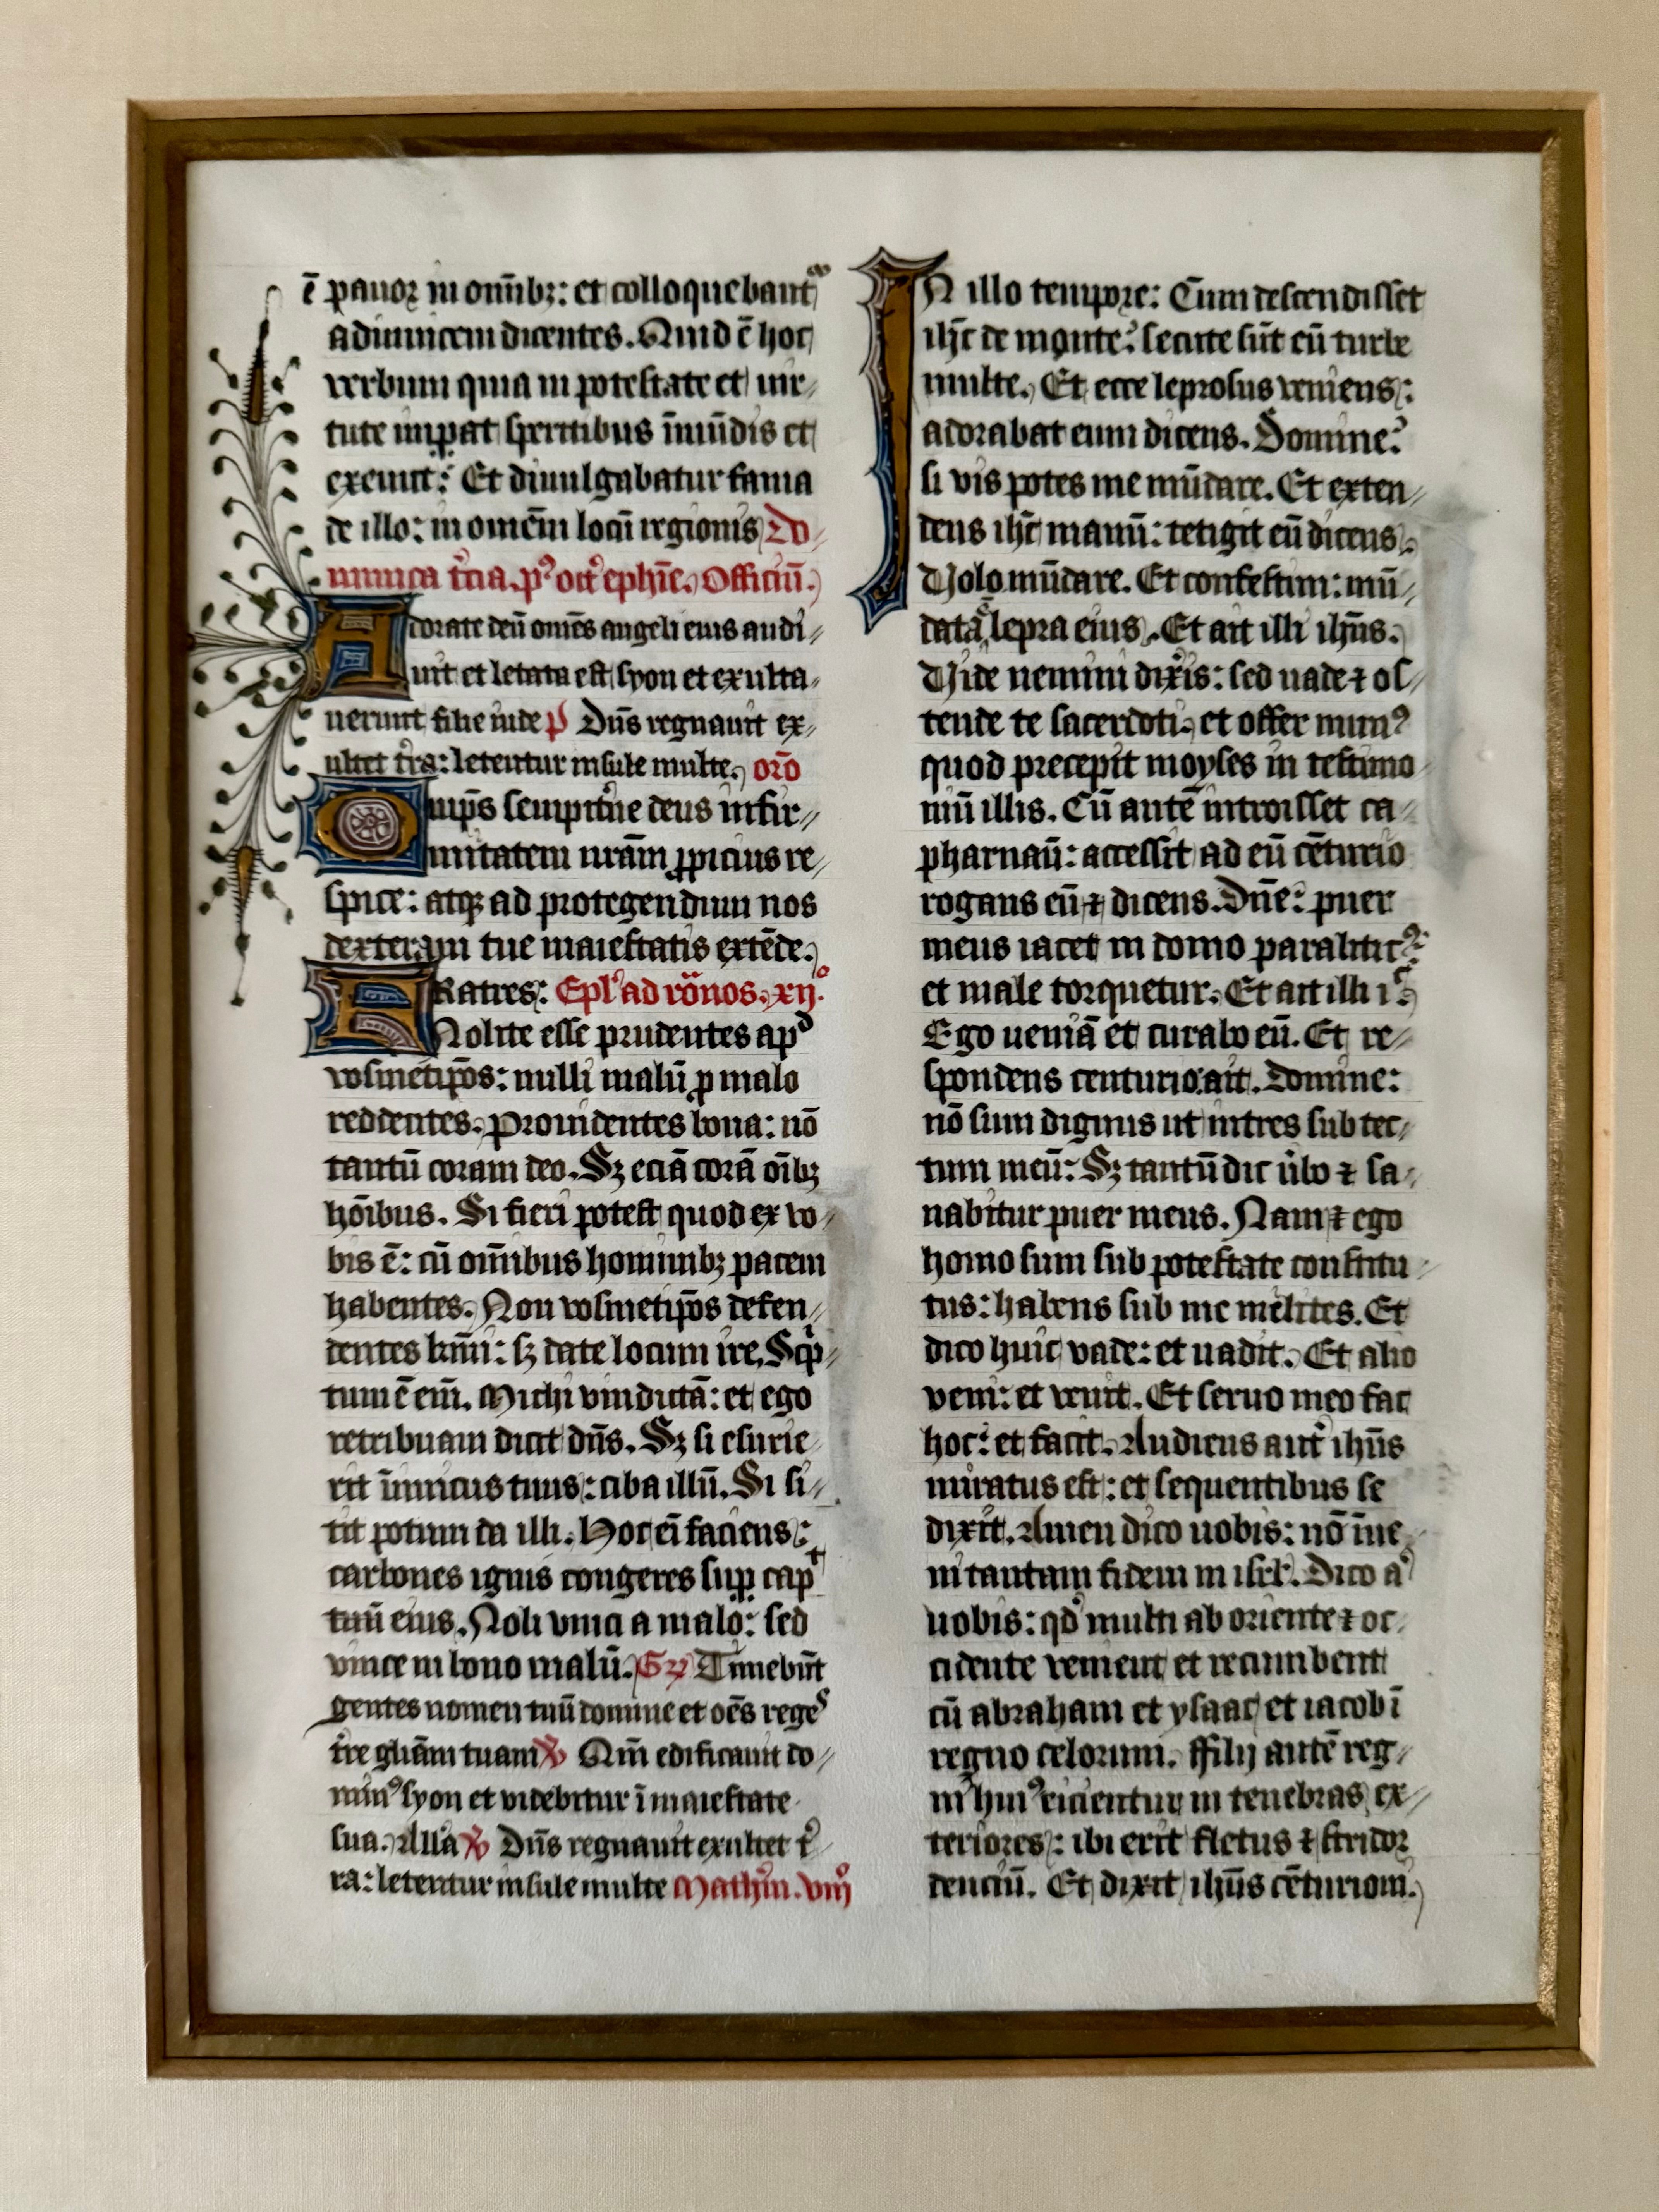 ē pauor in om̄ibꝫ: et colloquebant᷑
adinuicem dicentes. Quid ē hoc
verbum quia in potestate et uir⸗
tute imꝑat spiritibus īmūdis et
exeunt: Et diuulgabatur fama
de illo: in omēm locū regionis Do⸗
minica t̉cia. pꝰ oct̉ ephīe. Officiū.
Adorate deū om̄es angeli eius audi⸗
uit et letata est syon et exulta⸗
uerunt filie iude p̄ Dn̄s regnauit ex⸗
ultet t̉ra: letentur insule multe. or̄o
Omīps sempit̉ne deus infir⸗
mitatem nr̄am ꝓpicius re⸗
spice: atqꝫ ad protegendum nos
dexteram tue maiestatis extēde.
FRatres: Epl̉ ad rōnos. xij.°
Nolite esse prudentes apᵈ
vosmetip̄os: nulli malū ꝓ malo
reddentes. Prouidentes bona: nō
tantū coram deo. Sꝫ eciā corā oībꝫ
hōibus. Si fieri potest quod ex vo⸗
bis ē: cū om̄ibus hominibꝫ pacem
habentes. Non vosmetip̄os defen⸗
dentes km̄i: sꝫ date locum ire. Scͥp⸗
tum ē em̄. Michi vindictā: et ego
retribuam dicit dn̄s. Sꝫ si esurie
rit īimicus tuus: ciba illū. Si si⸗
tit potum da illi. Hoc eī faciens:
carbones ignis congeres suꝑ cap
tuū eius. Noli vinci a malo: sed
vince in bono malū. Gͬ Timebūt
gentes nomen tuū domine et oēs regeˢ
t̉re gl̄iam tuam ℣ Qm̄ edificauit do⸗
minꝰ syon et videbitur ī maiestate
sua. All̄a ℣ Dn̄s regnauit exultet t̉
ra: letentur insule multe Mathīn. viij°
IN illo tempore: Cum descendisset
ihc̄ de monte: secute sūt eū turbe
multe. Et ecce leprosus veniens:
adorabat eum dicens. Domine:
si vis potes me mūdare. Et exten⸗
dens ihc̄ manū: tetigit eū dicens.
Volo mūdare. Et confestim: mū⸗
data ē lepra eius. Et ait illi ihūs.
Vide nemini dixis: sed uade ⁊ os⸗
tende te sacerdoti. et offer munꝰ
quod precepit moyses in testimo
niū illis. Cū autē introisset ca⸗
pharnaū: accessit ad eū cēturio
rogans eū ⁊ dicens. Dn̄e: puer
meus iacet in domo paraliticꝰ:
et male torquetur. Et ait illi iᶜ.
Ego ueniā et curabo eū. Et re⸗
spondens centurio: ait. Domine:
nō sum dignus ut intres sub tec⸗
tum meū: Sꝫ tantū dic ūbo ⁊ sa⸗
nabitur puer meus. Nam ⁊ ego
homo sum sub potestate constitu⸗
tus: habens sub me milites. Et
dico huic vade: et uadit. Et alio
veni: et venit. Et seruo meo fac
hoc: et facit. Audiens aut̄ ihūs
miratus est: et sequentibus se
dixit. Amen dico uobis: nō īue
ni tantam fidem in isrl̉. Dico aͭ
uobis: qd̉ multi ab oriente ⁊ oc⸗
cidente venient et recumbent
cū abraham et ysaac et iacob ī
regno celorum. Ffilij autē reg⸗
ni hui᷒ eicientur in tenebras ex⸗
teriores: ibi erit fletus ⁊ stridor
denciū. Et dixit ihūs cēturioni.